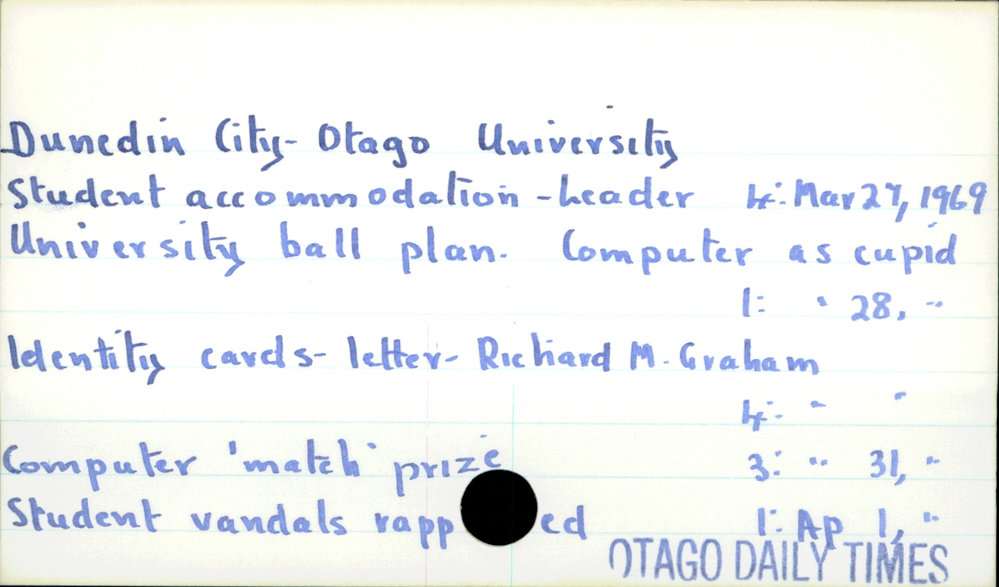 Dunedin City - Otago University
Student accommodation - Leader 4: Mar 27, 1969
University ball plan. Computer as cupid
1: " 28, "
Identity cards - letter - Richard M. Graham
4: " "
Computer 'match' prize 3: " 31, "
Student vandals rapp ed 1: Ap 1, "
OTAGO DAILY TIMES